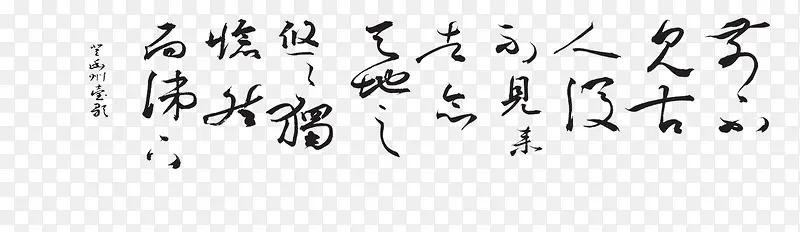 前不
見古
人後
不見来
者念
天地之
悠々獨
愴然
而涕下
登幽州臺歌